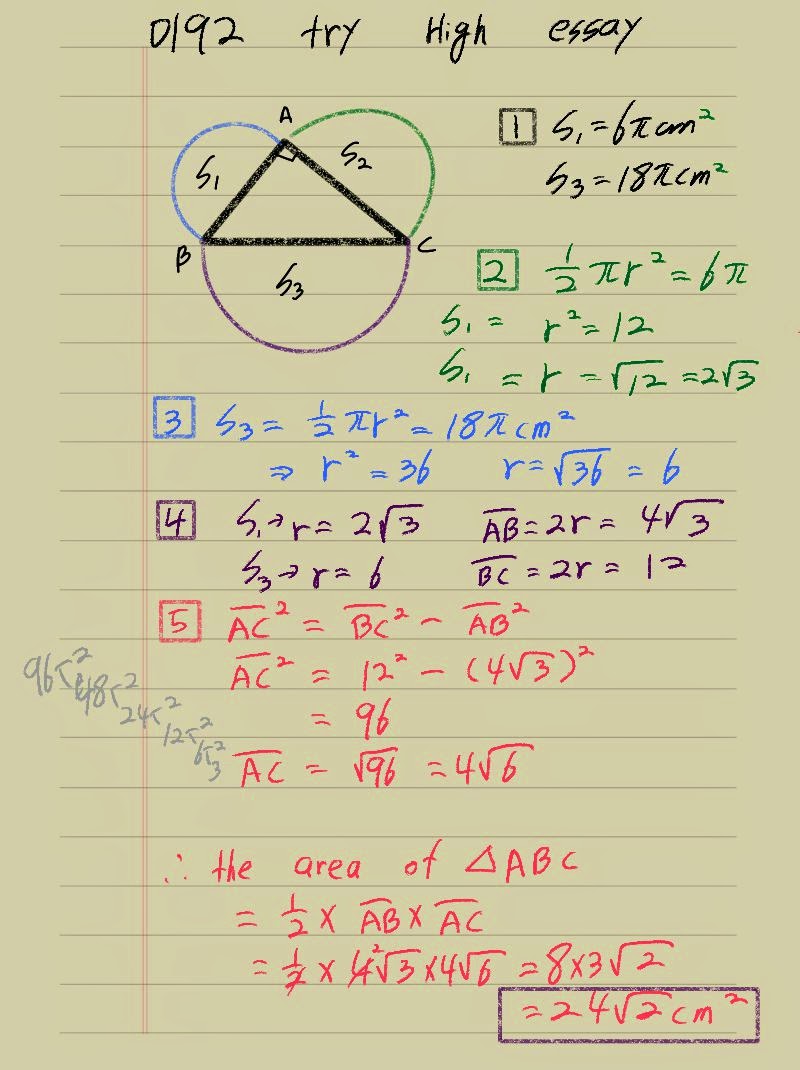 0192 try High essay
A
S₁ S₂
B C
S₃
1 S₁ = 6π cm²
S₃ = 18π cm²
2 1/2 πr² = 6π
S₁ = r² = 12
S₁ = r = √12 = 2√3
3 S₃ = 1/2 πr² = 18π cm²
⇒ r² = 36 r = √36 = 6
4 S₁ → r = 2√3 A̅B̅ = 2r = 4√3
S₃ → r = 6 B̅C̅ = 2r = 12
5 A̅C̅² = B̅C̅² - A̅B̅²
A̅C̅² = 12² - (4√3)²
= 96
A̅C̅ = √96 = 4√6
96 2
48 2
24 2
12 2
6 2
3
∴ the area of △ABC
= 1/2 × A̅B̅ × A̅C̅
= 1/2 × 4²√3 × 4√6 = 8×3√2
= 24√2 cm²